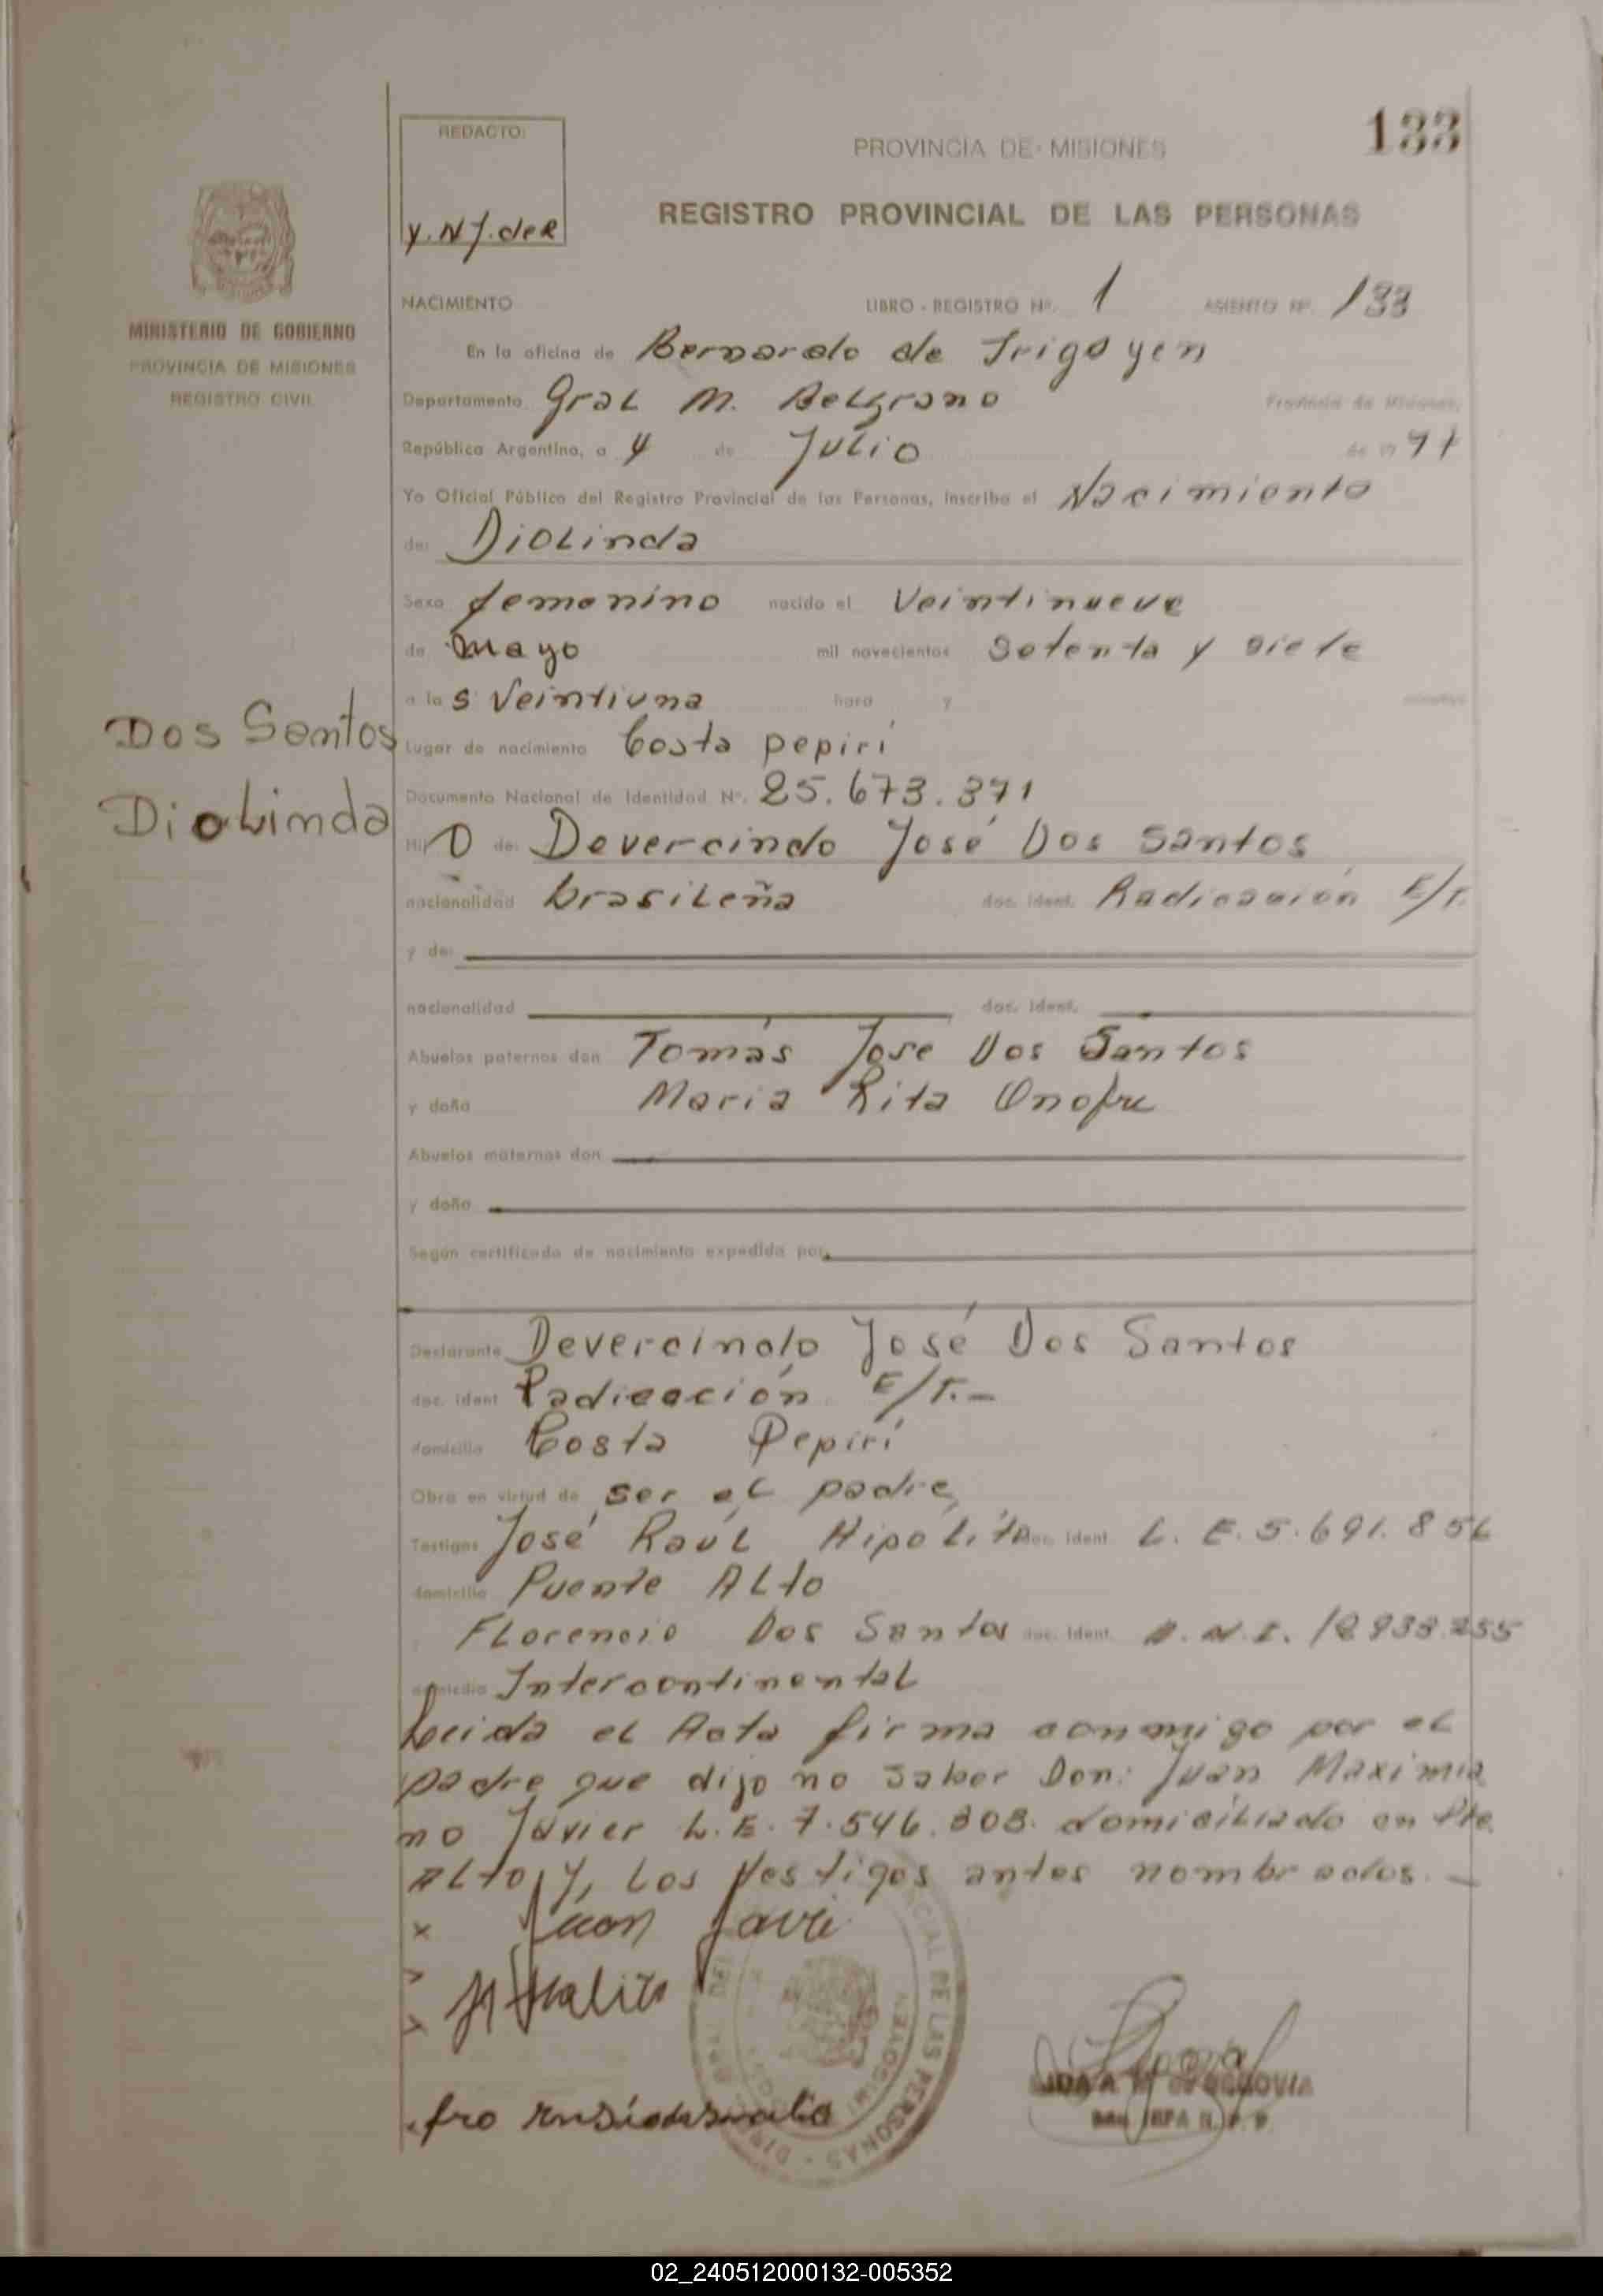 133
REDACTO:
PROVINCIA DE MISIONES
REGISTRO PROVINCIAL DE LAS PERSONAS
MINISTERIO DE GOBIERNO
PROVINCIA DE MISIONES
REGISTRO CIVIL
NACIMIENTO LIBRO - REGISTRO Nº. 1 ASIENTO Nº. 133
En la oficina de Bernardo de Irigoyen
Departamento Gral M. Belgrano Provincia de Misiones,
República Argentina, a 4 de Julio de 19
Yo Oficial Público del Registro Provincial de las Personas, inscribo el Nacimiento
de: Diolinda
Sexo femenino nacido el Veintinueve
de mayo mil novecientos Setenta y siete
a las Veintiuna hora y minutos
Dos Santos
Diolinda
Lugar de nacimiento Costa pepirí
Documento Nacional de Identidad Nº. 25.673.371
Hij O de: Devercindo José Dos Santos
nacionalidad brasileña doc. ident. Radicación E/T.
y de:
nacionalidad doc. ident.
Abuelos paternos don Tomás José Dos Santos
y doña Maria Rita Onofre
Abuelos maternos don
y doña
Según certificado de nacimiento expedido por
Declarante Devercindo José Dos Santos
doc. ident Radicación E/T.-
domicilio Costa Pepirí
Obra en virtud de ser el padre
Testigos José Raúl Hipólito doc. ident. L. E. 5.691.856
domicilio Puente Alto
Florencio Dos Santos doc. ident. D.N.I.
domicilio Intercontinental
Leida el Acta firma conmigo por el
padre que dijo no saber Don: Juan Maximia
no Javier L.E. 7.546.308. domiciliado en Pte.
Alto, y, los testigos antes nombrados. -
x Juan Javi
02_240512000132-005352